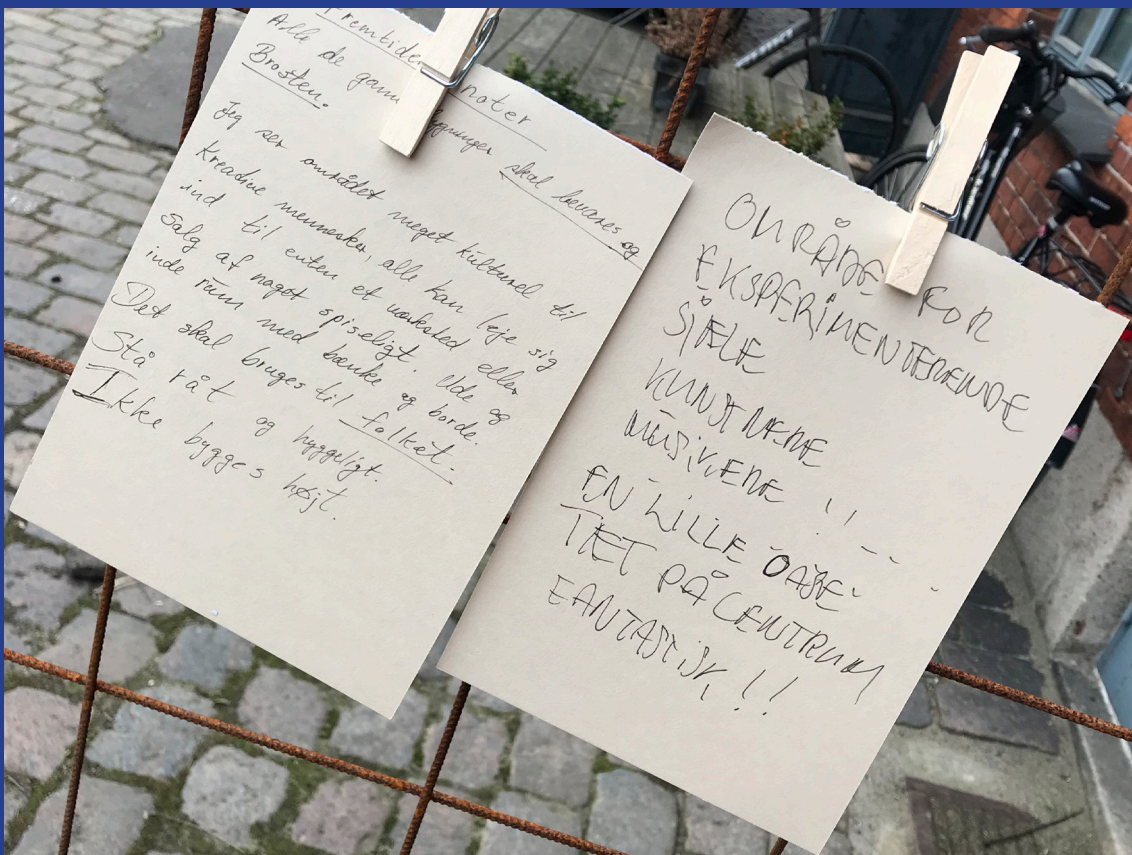 Fremtiden noter
Alle de gamle bygninger skal bevares og
Brosten.
Jeg ser området meget kulturel til
kreative mennesker, alle kan leje sig
ind til enten et værksted eller
salg af noget spiseligt. Ude og
inde rum med bænke og borde.
Det skal bruges til folket.
Stå råt og hyggeligt.
Ikke bygges højt.
OMRÅDE FOR
EKSPERIMENTERENDE
SJÆLE
KUNSTNERE
MUSIKERE !!
EN LILLE OASE
TÆT PÅ CENTRUM
FANTASTISK !!